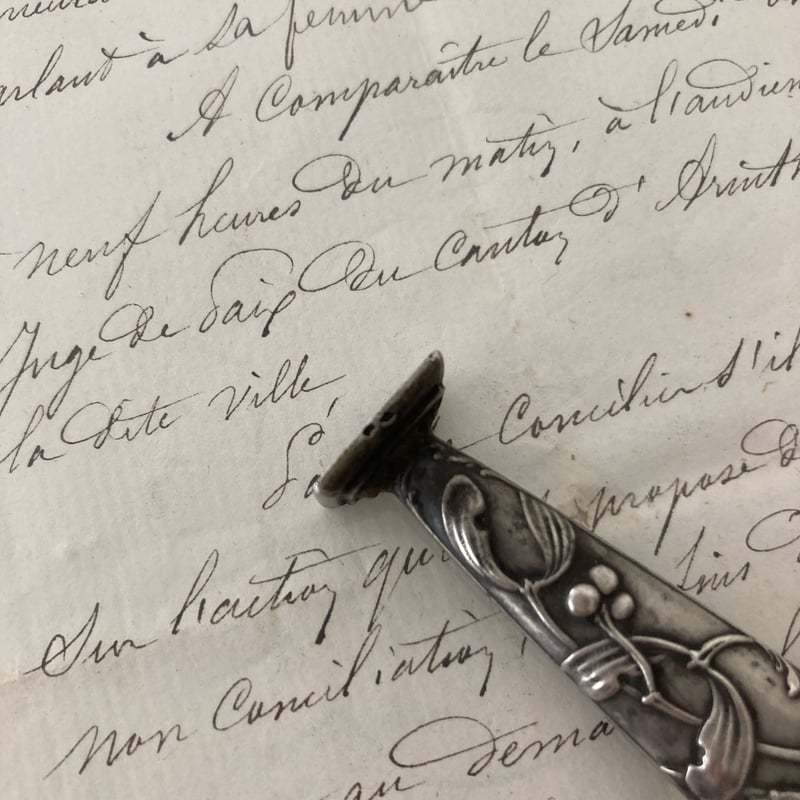 parlant à sa femme
A Comparaître le Samedi
neuf heures du matin, à l'audien
Juge de Paix du Canton d'Arinth
la dite ville,
Concilier s'il
propose d
Sur l'action qu
non Conciliation,
au dema